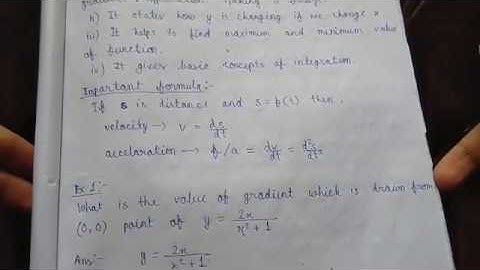 ii) It states how y is changing if we change x.
iii) It helps to find maximum and minimum value
of function.
iv) It gives basic concepts of integration.
Important formula:-
If s is distance and s = f(t) then,
velocity → v = ds/dt
accelaration → f/a = dv/dt = d²s/dt²
Ex 1:-
What is the value of gradient which is drawn from
(0,0) point of y = 2x/x²+1
Ans:- y = 2x/x²+1